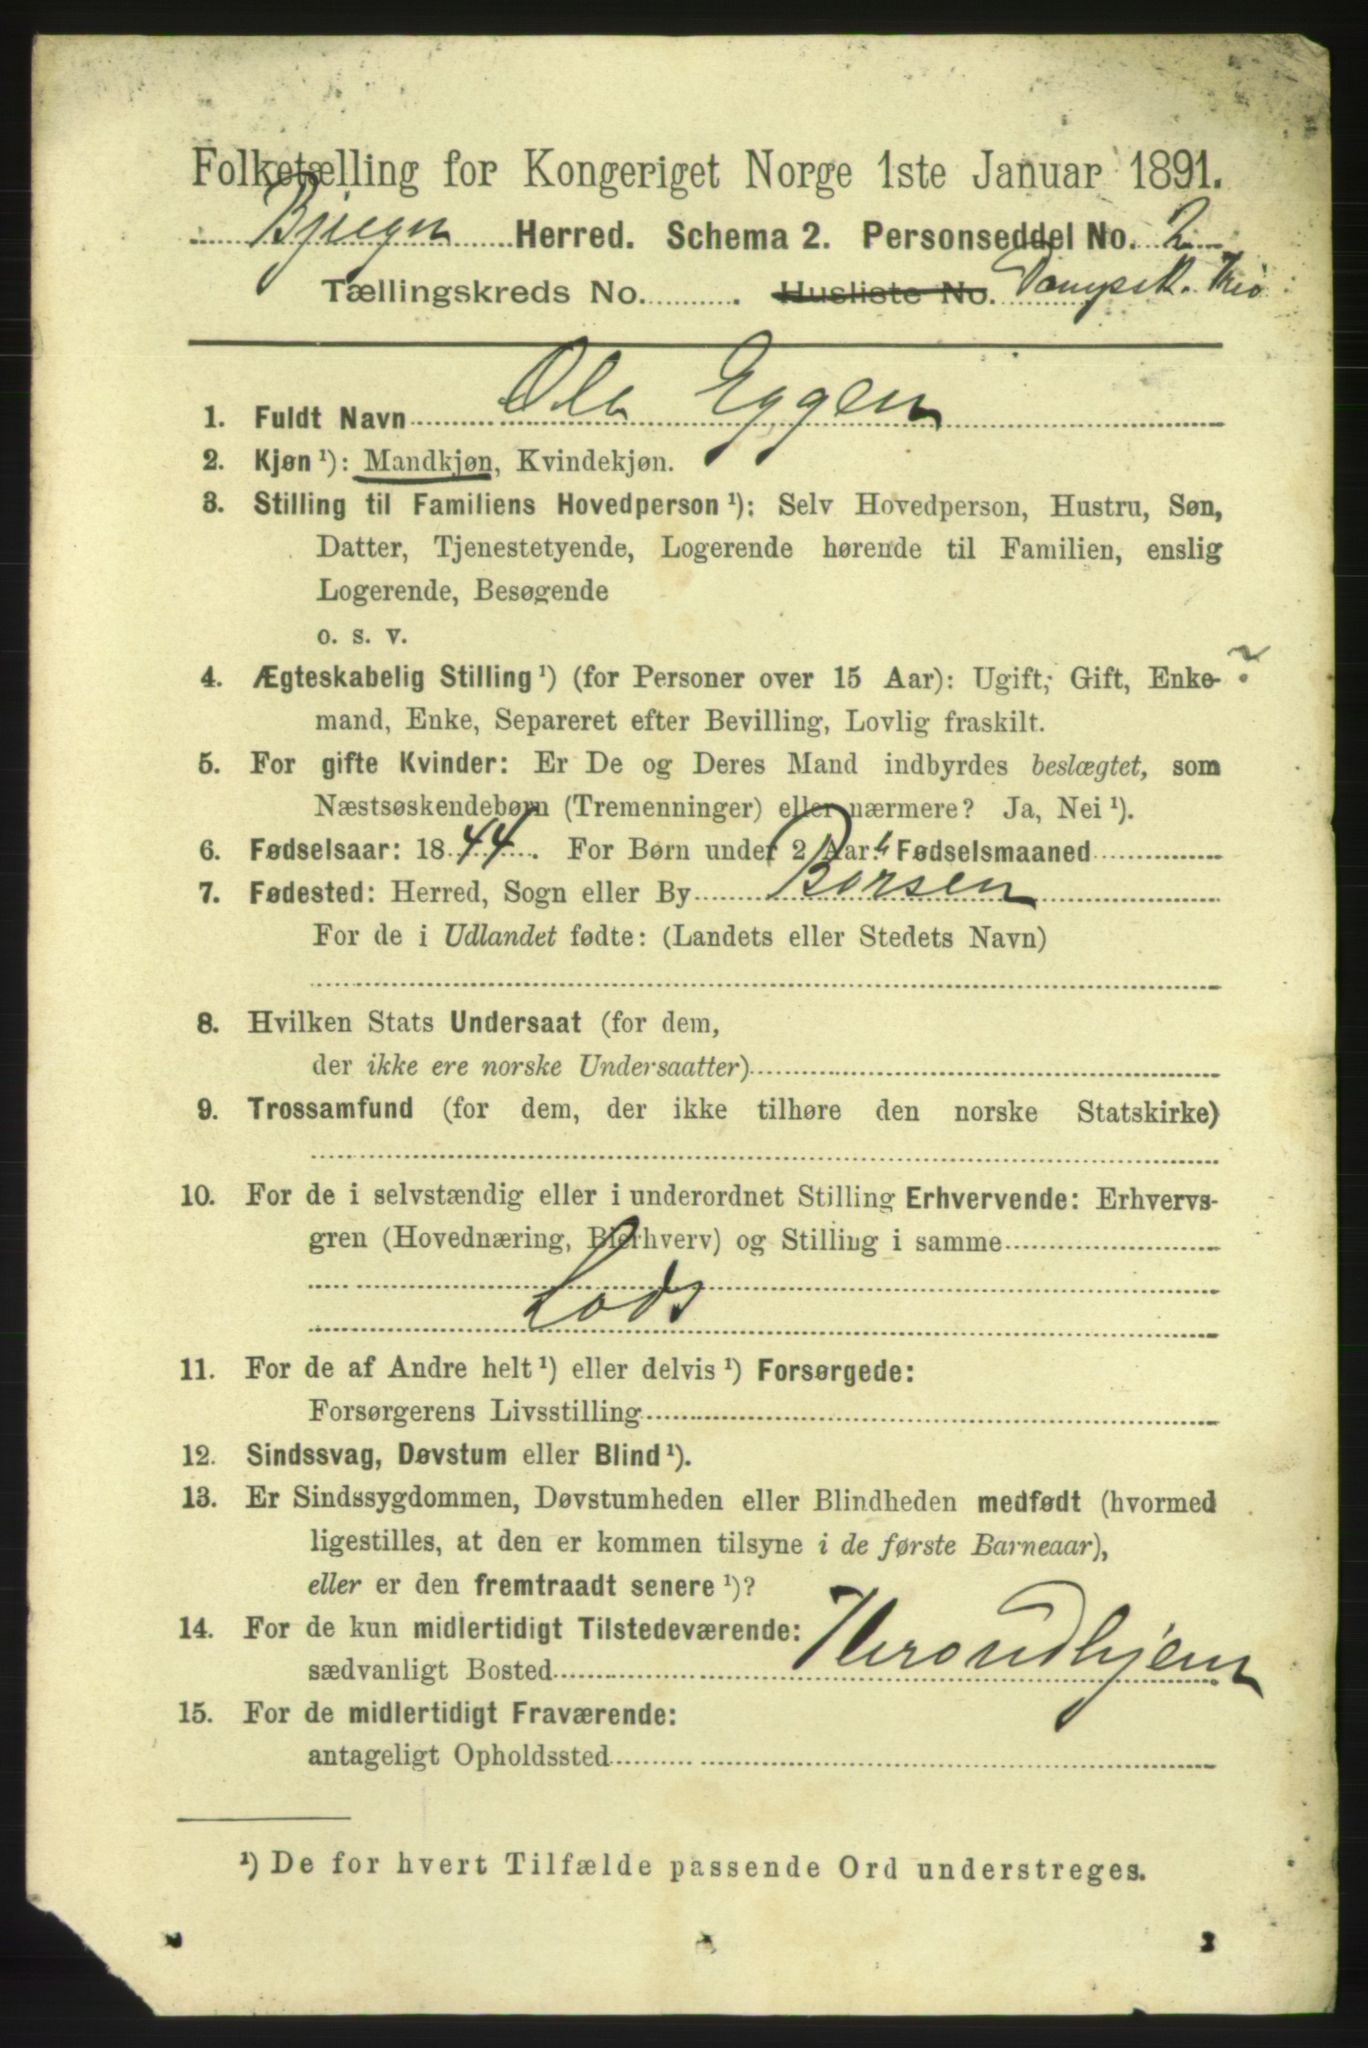 Folketælling for Kongeriget Norge 1ste Januar 1891.
Bjugn Herred. Schema 2. Personseddel No. 2
Tællingskreds No. . Husliste No. Dampsk.
1. Fuldt Navn Ole Eggen
2. Kjøn¹): Mandkjøn, Kvindekjøn.
3. Stilling til Familiens Hovedperson¹): Selv Hovedperson, Hustru, Søn,
Datter, Tjenestetyende, Logerende hørende til Familien, enslig
Logerende, Besøgende
o. s. v.
4. Ægteskabelig Stilling¹) (for Personer over 15 Aar): Ugift, Gift, Enke- ?
mand, Enke, Separeret efter Bevilling, Lovlig fraskilt.
5. For gifte Kvinder: Er De og Deres Mand indbyrdes beslægtet, som
Næstsøskendebørn (Tremenninger) eller nærmere? Ja, Nei¹).
6. Fødselsaar: 1844. For Børn under 2 Aar: Fødselsmaaned
7. Fødested: Herred, Sogn eller By Børsen
For de i Udlandet fødte: (Landets eller Stedets Navn)
8. Hvilken Stats Undersaat (for dem,
der ikke ere norske Undersaatter)
9. Trossamfund (for dem, der ikke tilhøre den norske Statskirke)
10. For de i selvstændig eller i underordnet Stilling Erhvervende: Erhvervs-
gren (Hovednæring, Bierhverv) og Stilling i samme
Lods
11. For de af Andre helt¹) eller delvis¹) Forsørgede:
Forsørgerens Livsstilling
12. Sindssvag, Døvstum eller Blind¹).
13. Er Sindssygdommen, Døvstumheden eller Blindheden medfødt (hvormed
ligestilles, at den er kommen tilsyne i de første Barneaar),
eller er den fremtraadt senere¹)?
14. For de kun midlertidigt Tilstedeværende:
sædvanligt Bosted Throndhjem
15. For de midlertidigt Fraværende:
antageligt Opholdssted
¹) De for hvert Tilfælde passende Ord understreges.